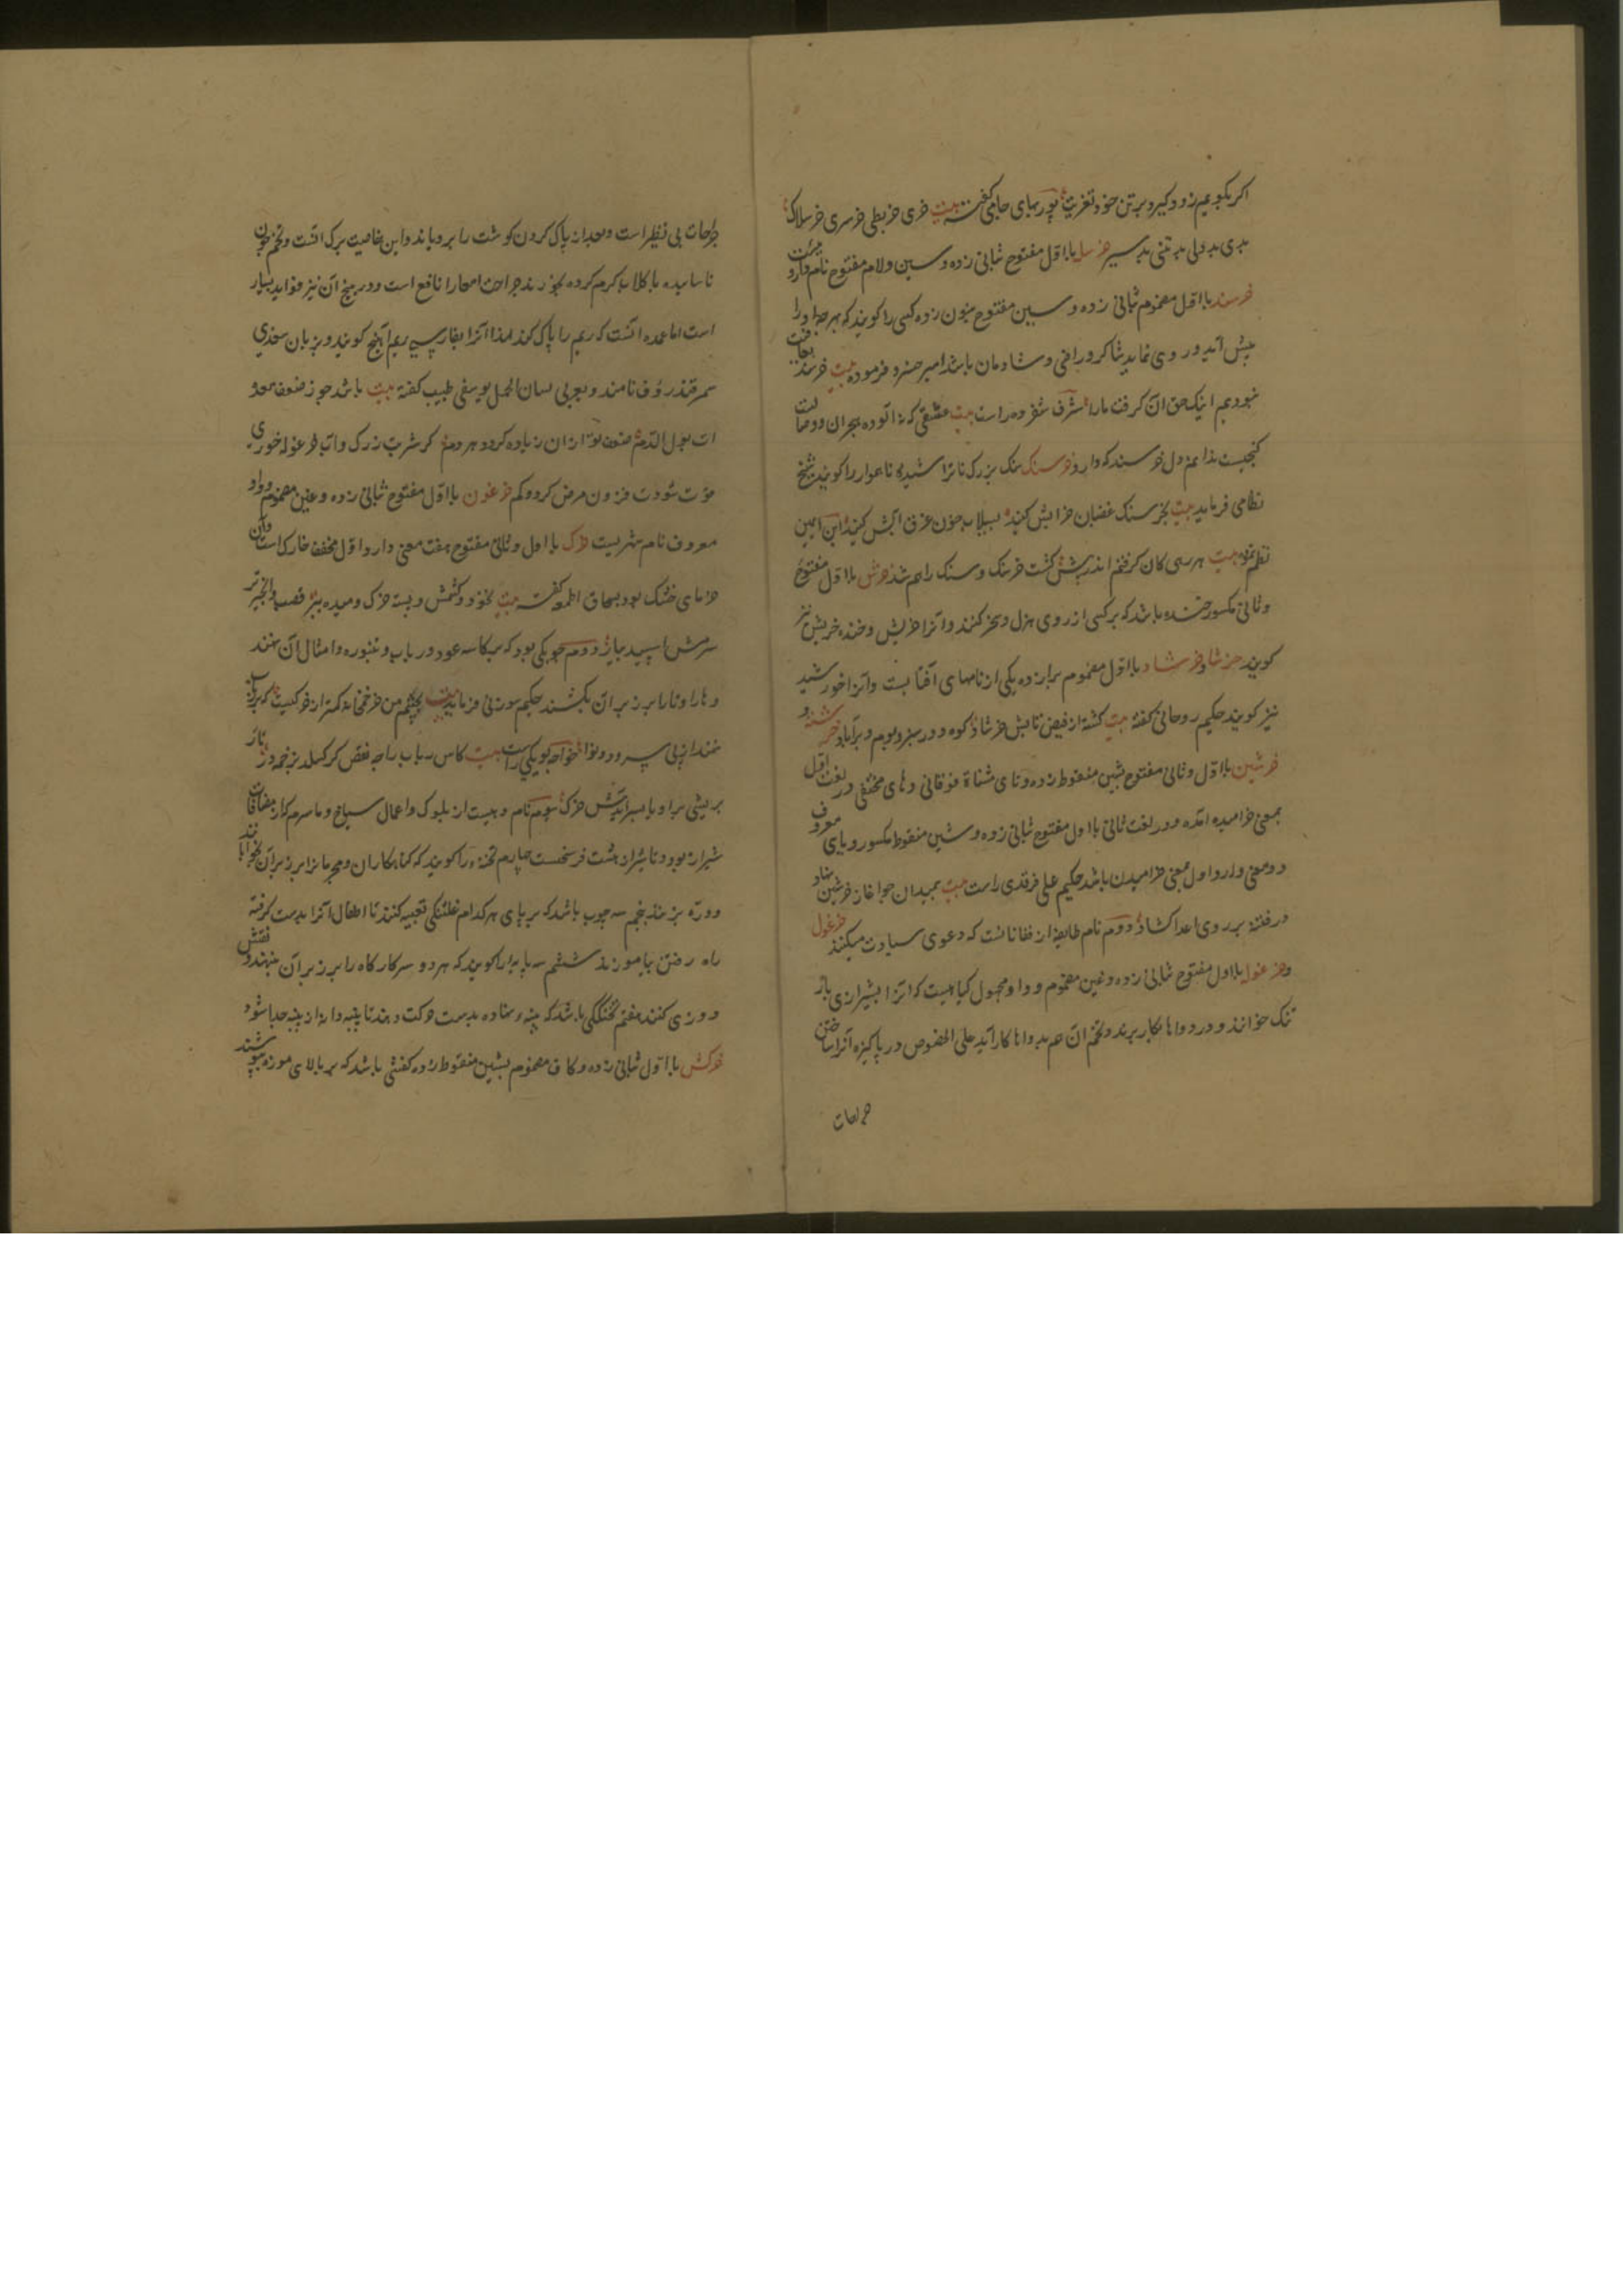 اکر بکویم زود کیرد برتن خود تعزیت پوربهای جامی کفته بیت خری خربطی خرسری خرسلاک
بدی بددلی بدتنی بدسیر خرسله بااول مفتوح بثانی زده وسین ولام مفتوح نام داروئیست
خرسند بااول مضموم بثانی زده وسین مفتوح بنون زده کسی را کویند که بهرچه اورا
پیش آید وروی نماید شاکر وراضی وشادمان باشد امیر خسرو فرموده بیت خرسند
نبودیم اینک حق آن کرفت مارا شرف شفروه راست بیت عشقی که نه آلوده هجران ووصالست
کنجیست ندانم دل خرسند که دارد خرسنک سنک بزرک ناتراشیده ناهموار را کویند شیخ
نظامی فرماید بیت بخرسنک غضبان خرابش کنند بسیلاب خون غرق آبش کنند ابن یمین
نظم نموده بیت هر رهی کان کرفتم اندر پیش کشت خرسنک وسنک راهم شد خرش بااول مفتوح
وثانی مکسور خنده باشد که بر کسی از روی هزل وسخر کنند وآنرا خریش وخنده خریش نیز
کویند خرشا وخرشاد بااول مضموم برا زده یکی از نامهای آفتابست وآنرا خورشید
نیز کویند حکیم روحانی کفته بیت کشته از فیض تابش خرشاد کوه ودر سبز وبوم وبر آباد خرشته و
خرشین بااول وثانی مفتوح بشین منقوط زده وتای مثناة فوقانی وهای مختفی در لغت اول
بمعنی خرامیده آمده ودر لغت ثانی بااول مفتوح بثانی زده وشین منقوط مکسور ویای معروف
دو معنی دارد اول بمعنی خرامیدن باشد حکیم علی فرقدی راست بیت بمیدان چو آغاز خرشین نهاد
در فتنه بر روی اعدا کشاد دوم نام طایفه از افغانانست که دعوی سیادت میکنند خرغول
وخرغوله بااول مفتوح بثانی زده وغین مضموم وواو مجهول کیاهیست که آنرا بشیرازی بار
تنک خوانند ودر دواها بکار برند وتخم آن هم بدواها کار آید علی الخصوص در پاکیزه ساختن
جراحات
جراحات بی نظیر است وبعد از پاک کردن کوشت را برویاند واین خاصیت برک آنست وتخم چون
ناساییده با کلاب کرم کرده بخورند جراحت امعا را نافع است ودر بیخ آن نیز فواید بسیار
است اما عمده آنست که ریم را پاک کند لهذا آنرا بفارسی ریم آهنج کویند وبزبان سغدی
سمرقند رؤف نامند وبعربی لسان الحمل یوسفی طبیب کفته بیت باشد چو ز ضعف معده
ات بول الدم ضعف تو از آن زیاده کردد هردم کر شربت زرک وآب خرغوله خوری
قوت شودت فزون مرض کردد کم خرغون بااول مفتوح بثانی زده وغین مضموم وواو
معروف نام شهریست خرک بااول وثانی مفتوح هفت معنی دارد اول مخفف خارک است وآن
خرمای خشک بود بسحاق اطعمه کفته بیت نخود وکشمش وپسته خرک ومیده ببر قصب وانجیر
سرمش اسپید بیار دوم چوبکی بود که بر کاسه عود ورباب وطنبوره وامثال آن نهند
وتارها را بر زبر آن بکشند حکیم سوزنی فرماید بیت
خنداز پی سرود ونوا خواجو راست بیت کاس رباب راچه نقص کر کسلد بزخمه در تار
بریشی مرا ویا بسر آیدش خرک سوم نام دهیست از بلوک واعمال سیاخ وماصرم که از مضافات
شیراز بود وتا شیراز هشت فرسنخست چهارم تخته را کویند که کناهکاران ومجرمانرا بر زبر آن بخوابانند
ودره بزنند پنجم سه چوب باشد که بر پای هرکدام غلتکی تعبیه کنند تا اطفال آنرا بدست کرفته
راه رفتن بیاموزند ششم سه پایه را کویند که هر دو سر کارکاه را بر زبر آن نهند ونقش
ودوزی کنند هفتم تختکی باشد که پنبه نهاده بدست حرکت دهند تا پنبه دانه از پنبه جدا شود
خرکش بااول بثانی زده وکاف مضموم بشین منقوط زده کفشی باشد که بر بالای موزه پوشند